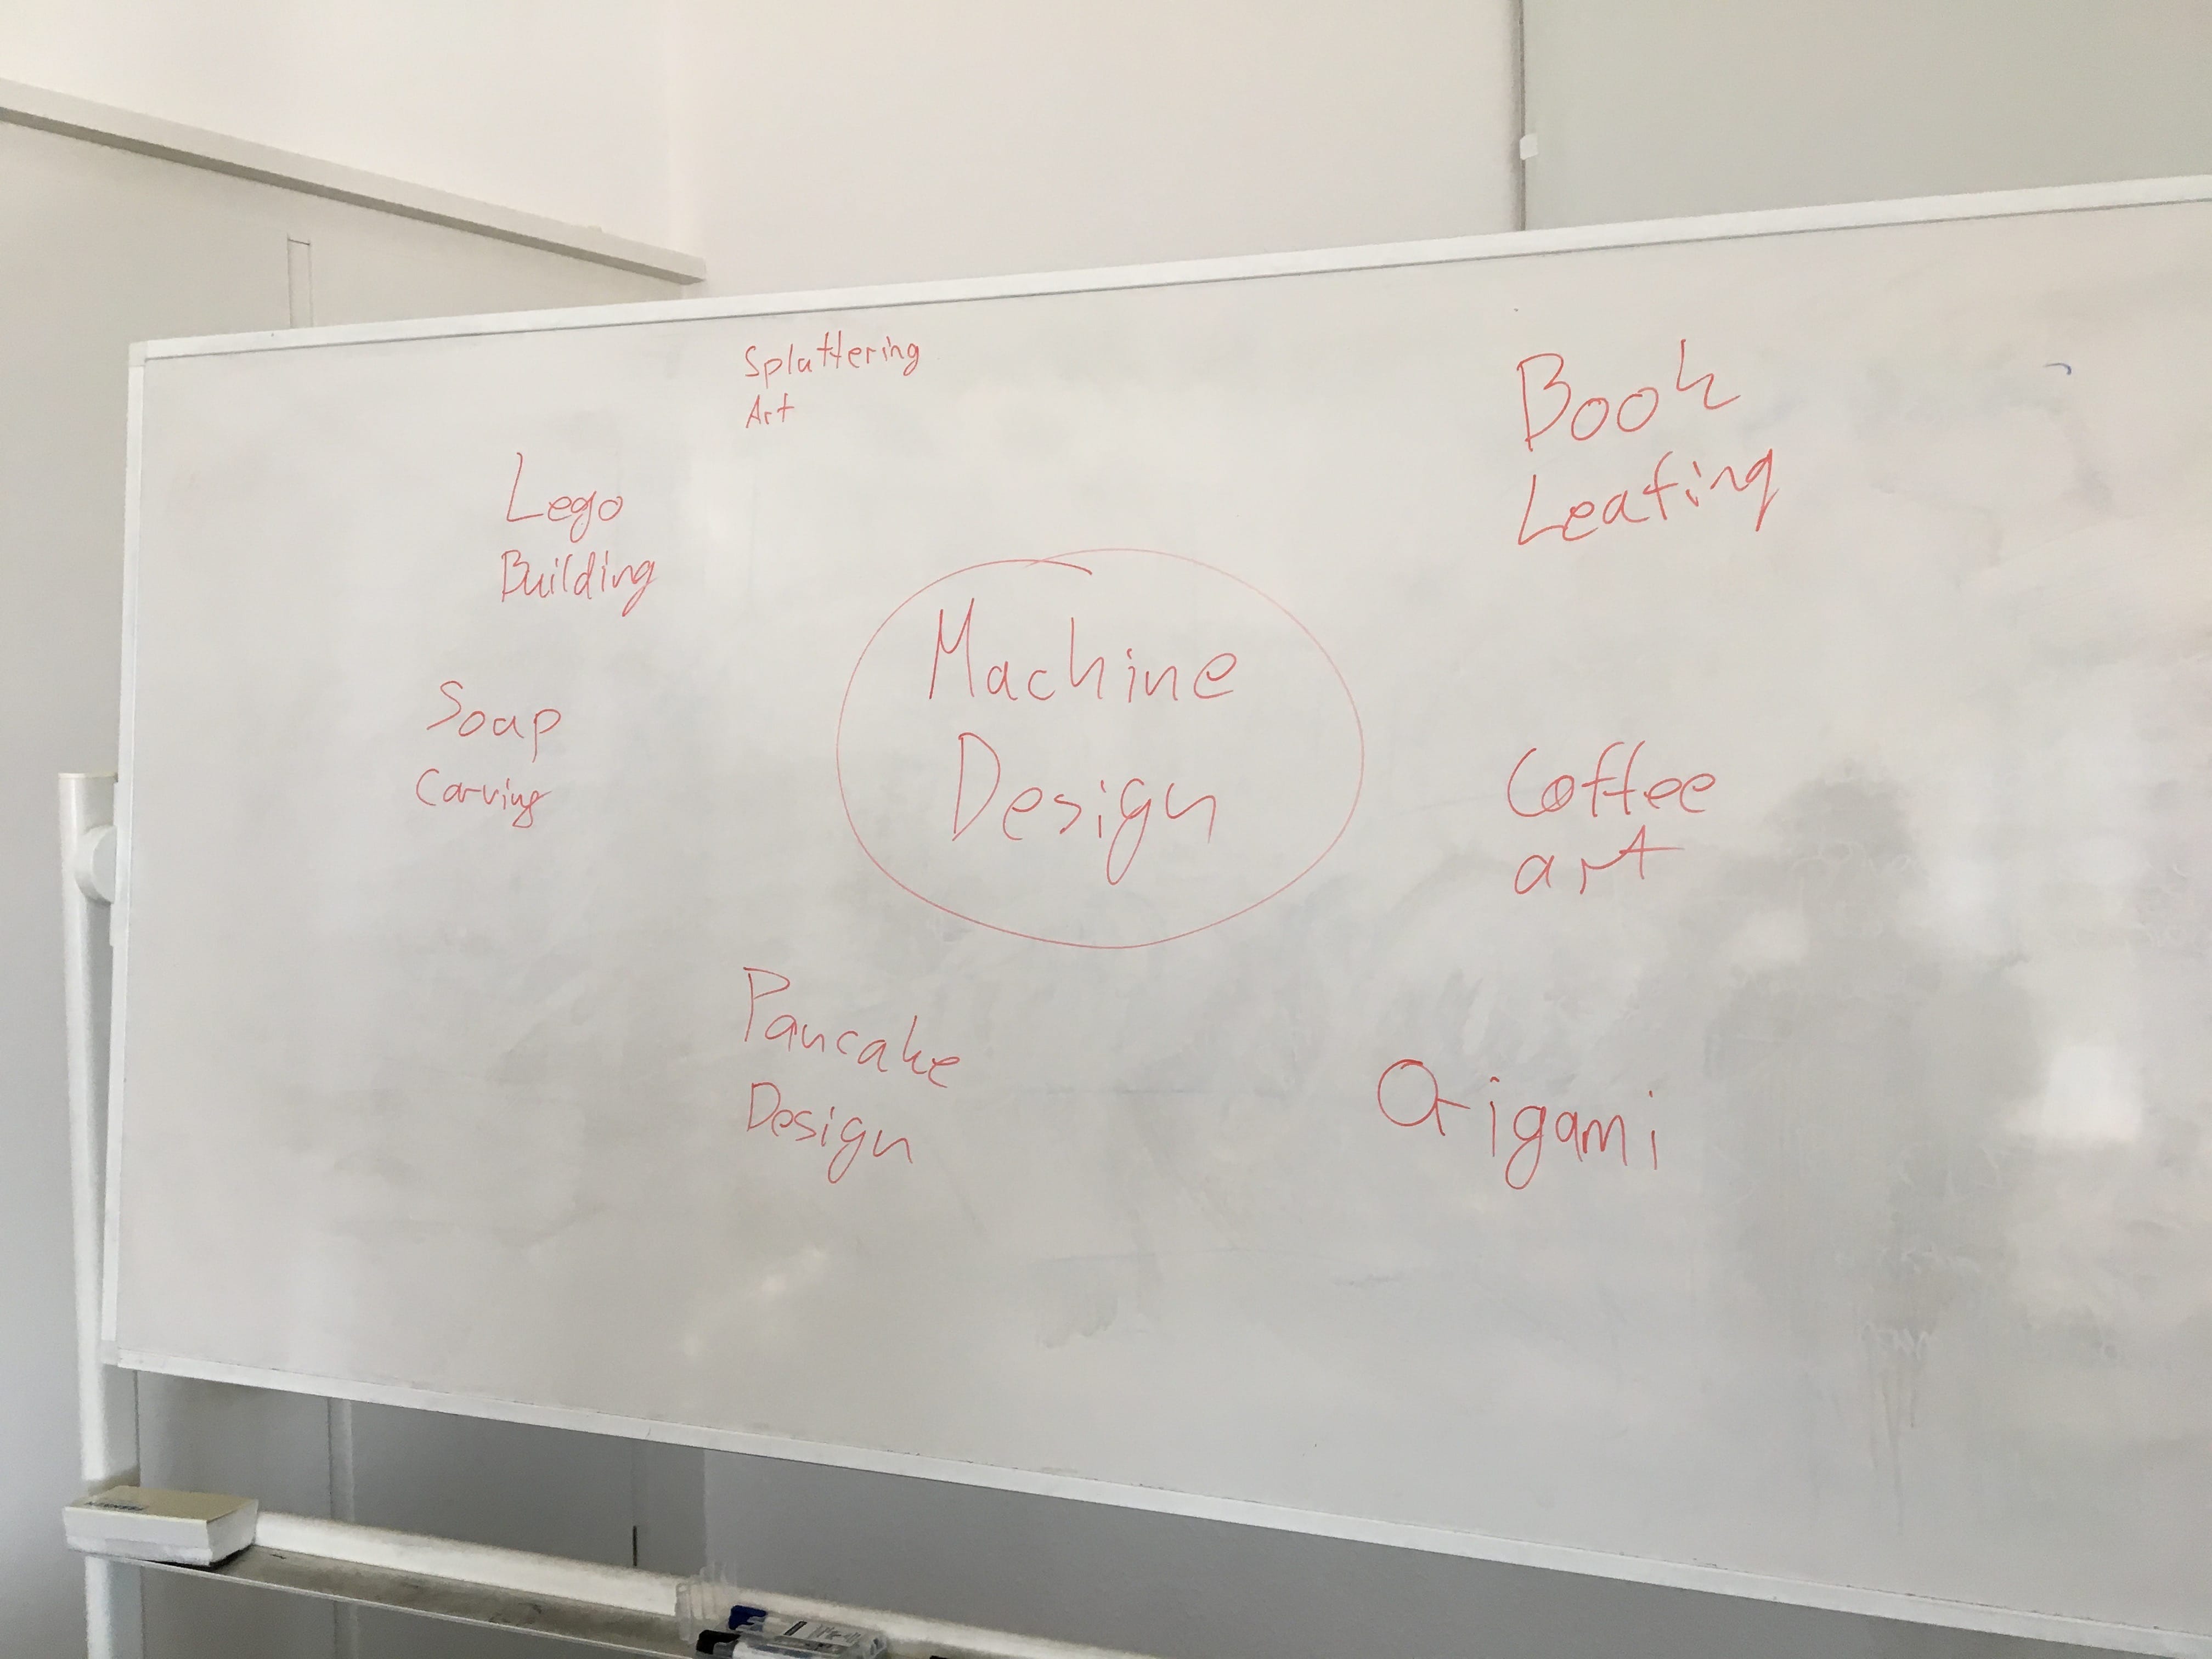 Splattering
Art
Lego
Building
Soap
Carving
Machine
Design
Pancake
Design
Book
Leafing
Coffee
art
Origami